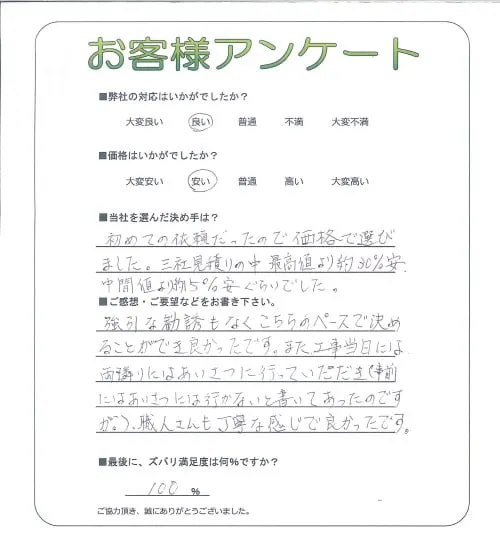 お客様アンケート
■弊社の対応はいかがでしたか?
大変良い 良い 普通 不満 大変不満
■価格はいかがでしたか?
大変安い 安い 普通 高い 大変高い
■当社を選んだ決め手は?
初めての依頼だったので価格で選び
ました。三社見積りの中最高値より約30%安.
中間値より約5%安ぐらいでした。
■ご感想・ご要望などをお書き下さい。
強引な勧誘もなくこちらのペースで決め
ることができ良かったです。また工事当日には
両隣りにはあいさつに行っていただき(事前
にはあいさつには行かないと書いてあったのです
が。)、職人さんも丁寧な感じで良かったです。
■最後に、ズバリ満足度は何%ですか?
100 %
ご協力頂き、誠にありがとうございました。